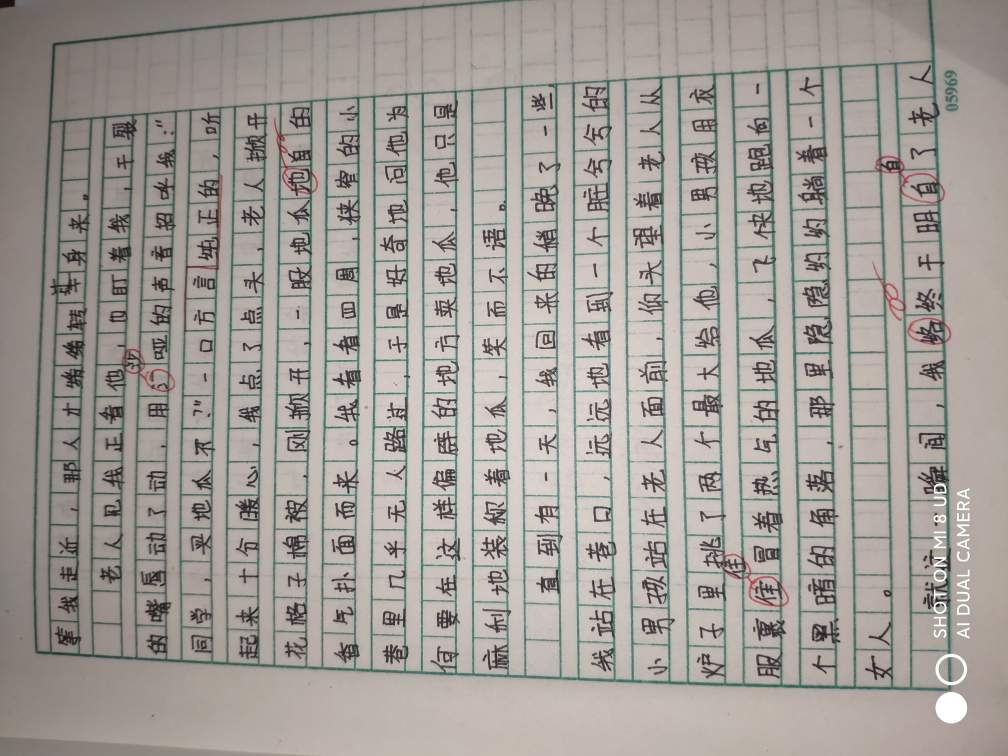 等我走近，那人才缩缩转转身来。
老人见我正看他，也盯着我，干裂
的嘴唇动了动，用沙哑的声音招呼我："
同学，买地瓜不？"一口方言纯正的，听
起来十分暖心，我点了点头，老人掀开
花格子棉被，刚掀开，一股地瓜地自的
香气扑面而来。我看看四周，狭窄的小
巷里几乎无人路过，于是好奇地问他为
何要在这样偏僻的地方卖地瓜，他只是
麻利地装称着地瓜，笑而不语。
直到有一天，我回来的稍晚了一些，
我站在巷口，远远地看到一个脏兮兮的
小男孩站在老人面前，仰头望着老人从
炉子里挑了两个最大给他，小男孩用衣
服裹住冒着热气的地瓜，飞快地跑向一
个黑暗的角落，那里隐隐约约躺着一个
女人。
就这瞬间，我终于明白了老人
05969
SHOT ON MI 8 UD
AI DUAL CAMERA